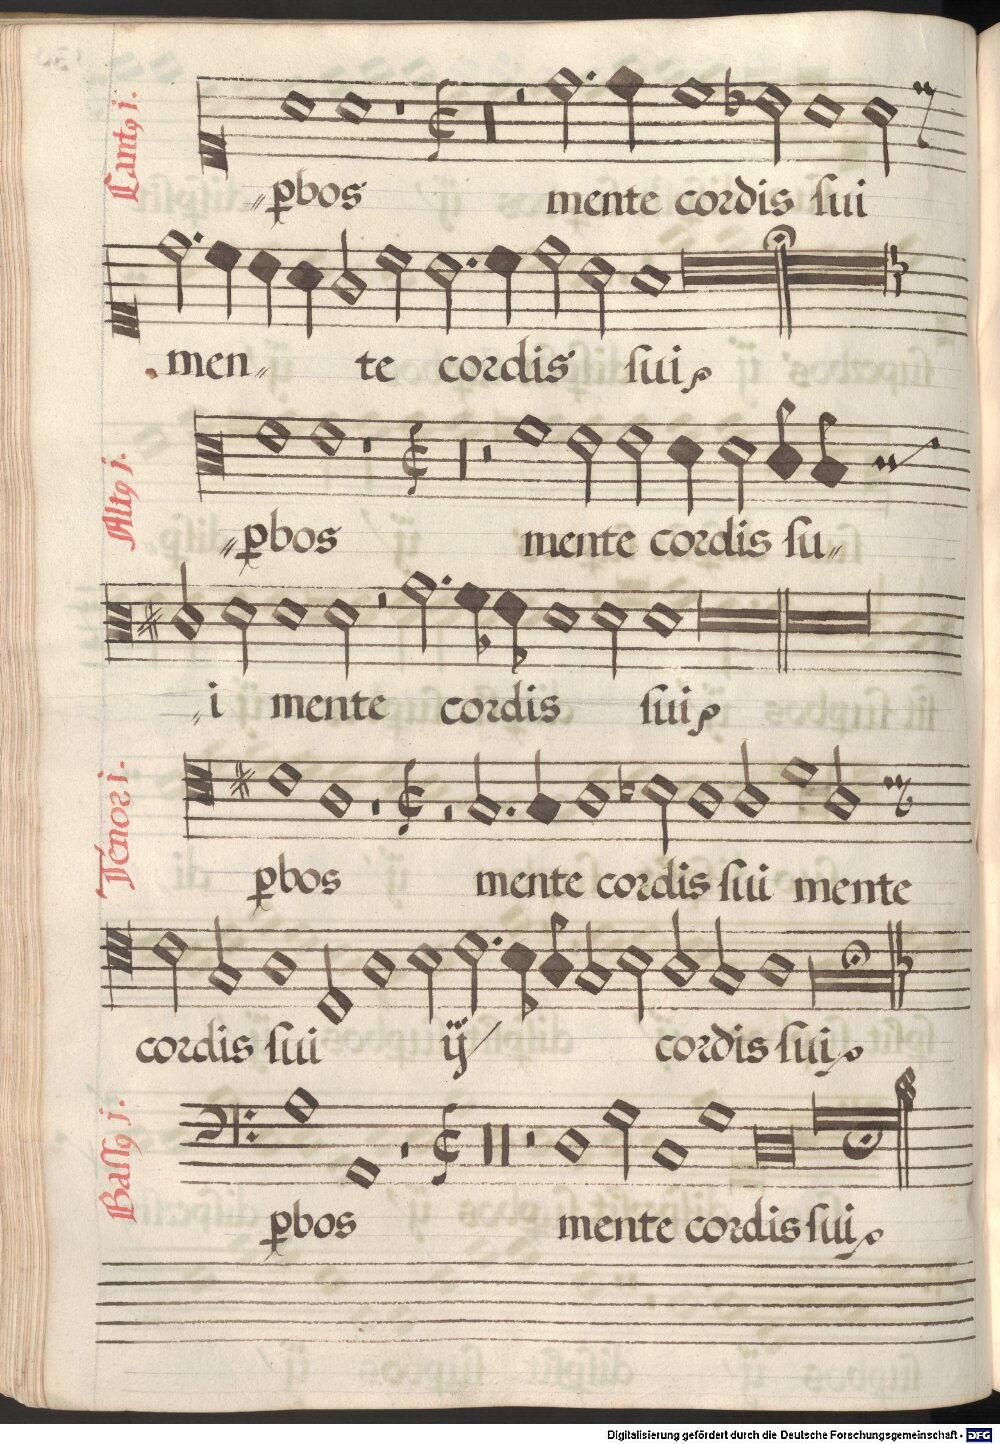 Cantꝯ j.
„ꝑbos mente cordis ſui
men„ te cordis ſui
Altꝯ j.
„ꝑbos mente cordis ſu„
„i mente cordis ſui
Tenor j.
ꝑbos mente cordis ſui mente
cordis ſui ij cordis ſui
Baſſꝯ j.
ꝑbos mente cordis ſui
Digitalisierung gefördert durch die Deutsche Forschungsgemeinschaft - DFG